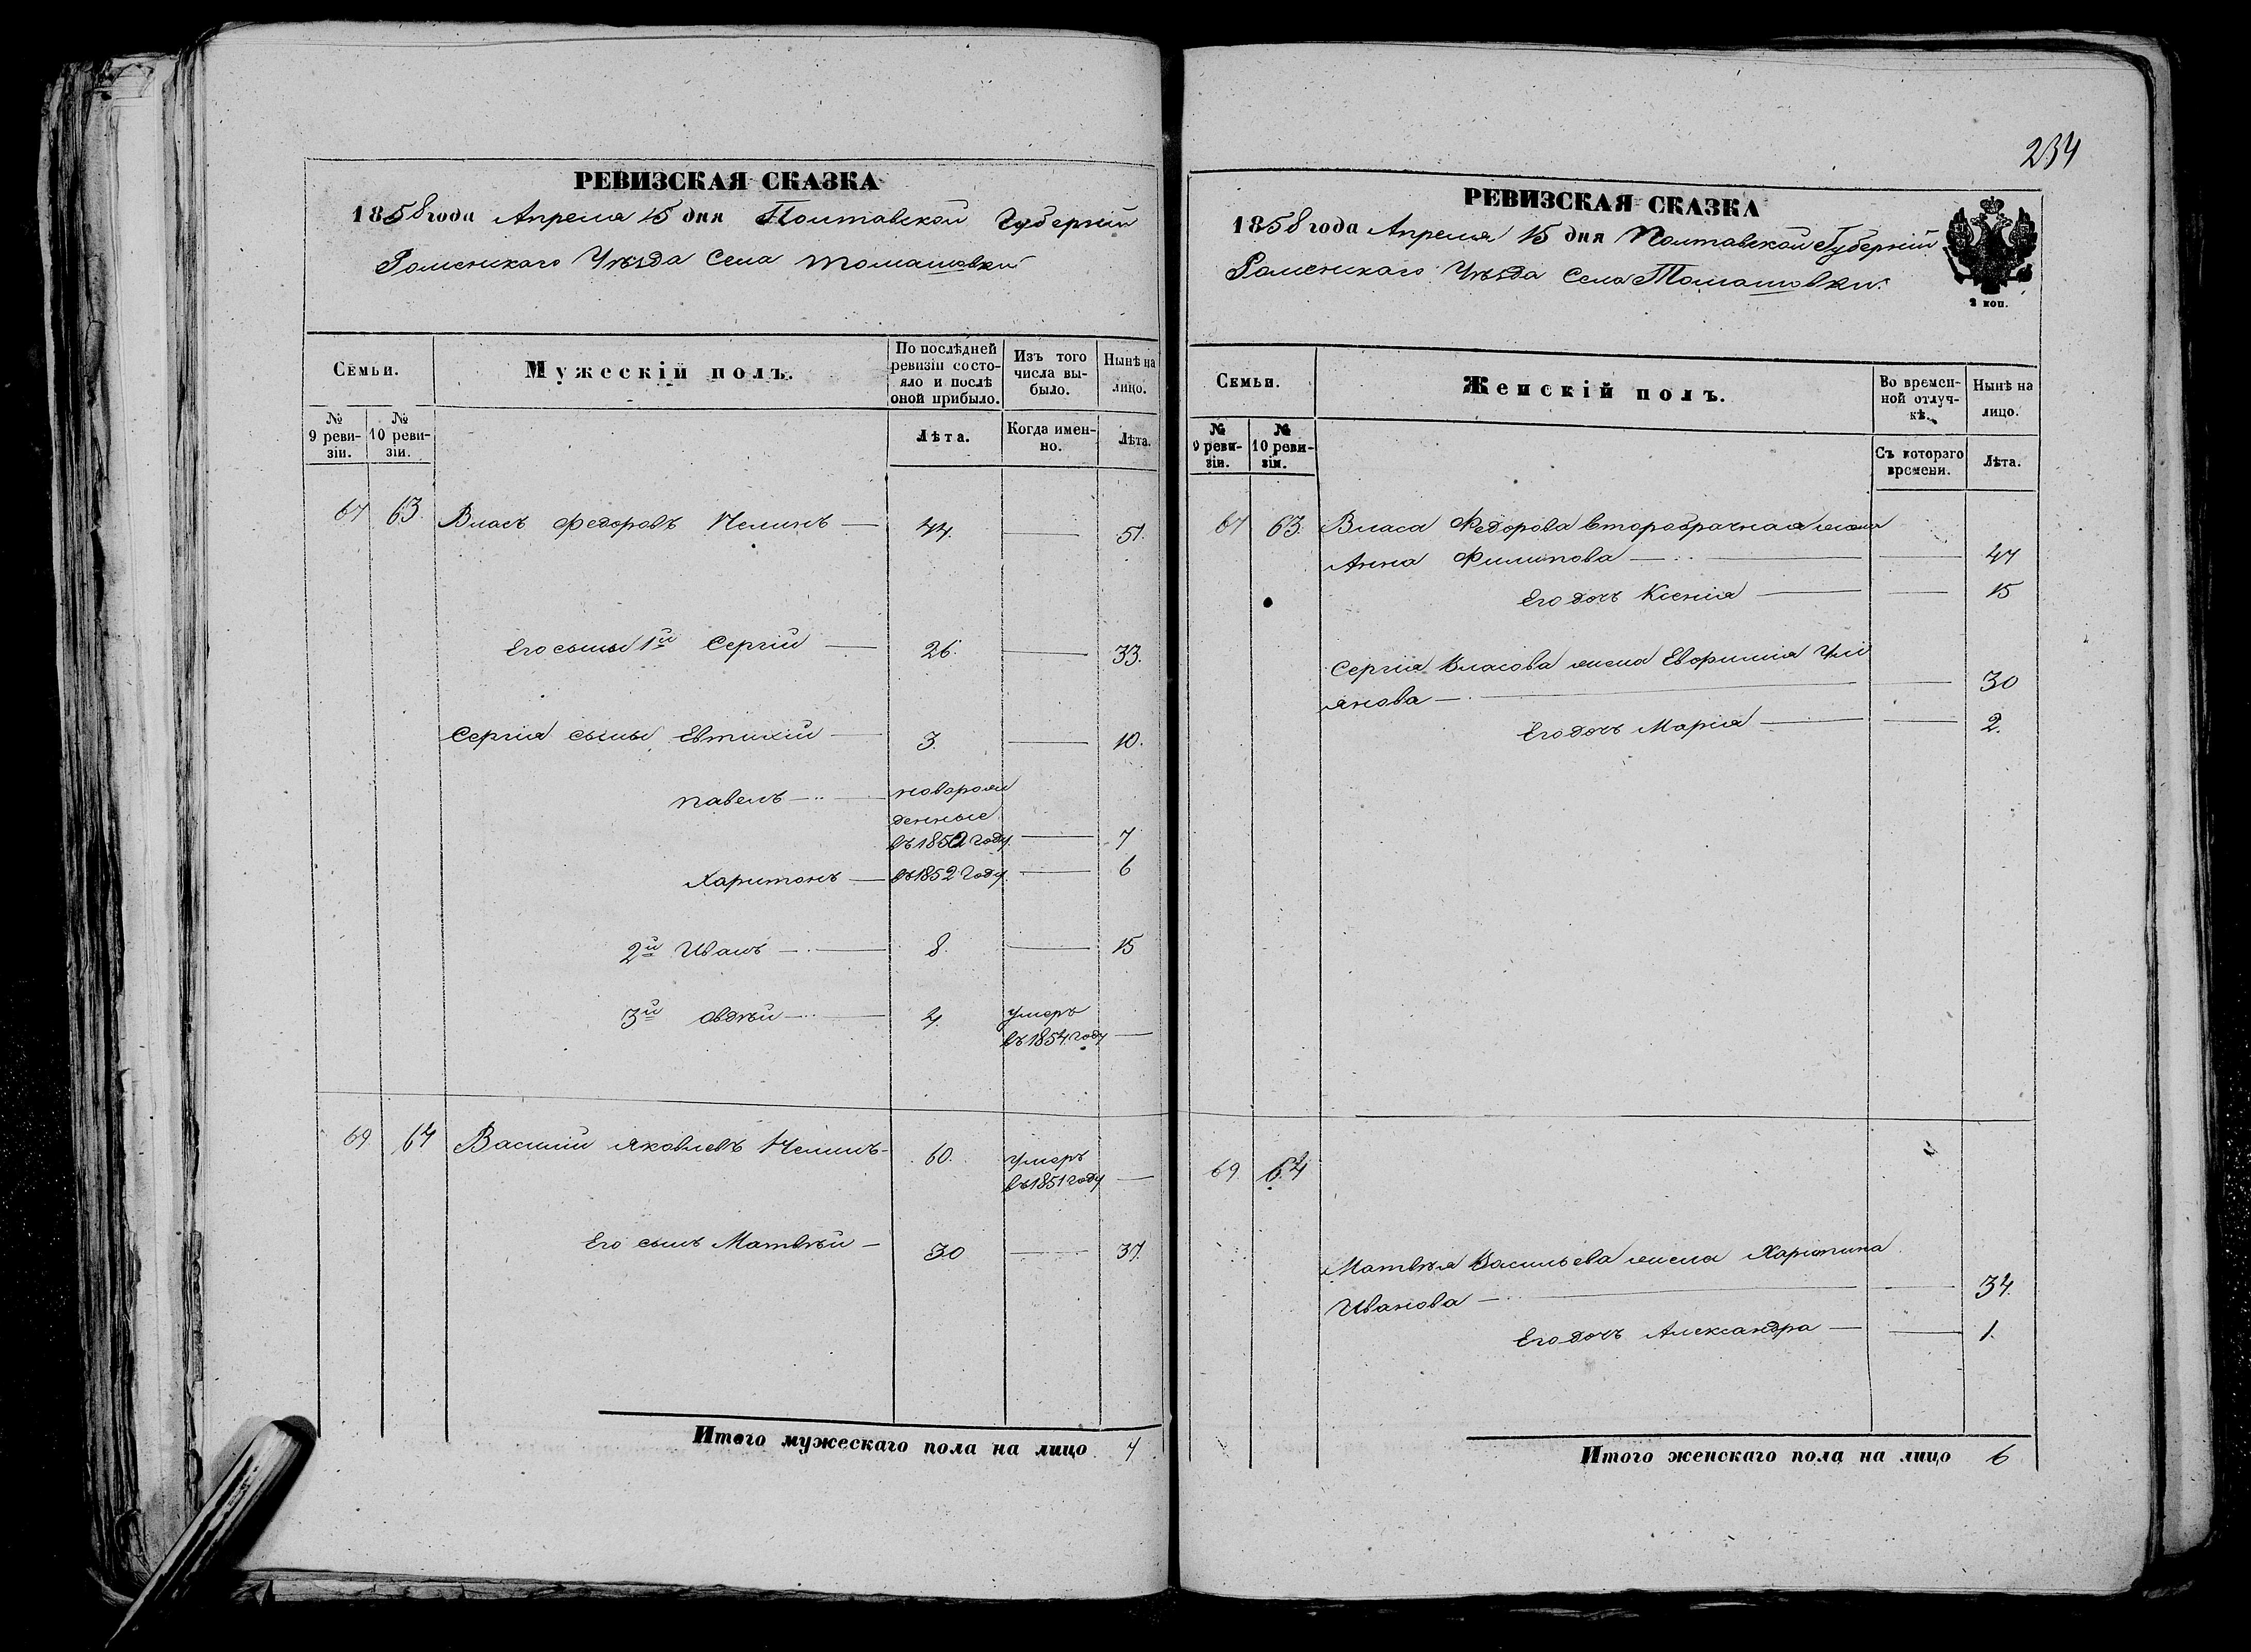 РЕВИЗСКАЯ СКАЗКА
1858 года Апреля 15 дня Полтавской Губерніи
Роменскаго Уѣзда Села Томашовки
Семьи.
Мужескій полъ.
По послѣдней ревизіи состо-
яло и послѣ
оной прибыло.
Изъ того
числа вы-
было.
Нынѣ на
лицо.
№
9 реви-
зіи.
№
10 реви-
зіи.
Лѣта.
Когда имен-
но.
Лѣта.
67 63. Власъ Федоровъ 44. 51.
Его сыны 1й Сергій 26. 33.
Сергія сыны Евтихій 3. 10.
Павелъ новорож
денные
въ 1851 году. 7
Харитонъ въ 1852 году. 6
2й Иванъ 8. 15
3й Овдѣй 4. умеръ
въ 1854 году
69 64 Василій Яковлевъ 60. умеръ
въ 1851 году
Его сынъ Матвѣй 30 37.
Итого мужескаго пола на лицо 7
234
РЕВИЗСКАЯ СКАЗКА
1858 года Апреля 15 дня Полтавской Губерніи
Роменскаго Уѣзда Села Томашовки.
2 коп.
Семьи.
Женскій полъ.
Во времен-
ной отлуч-
кѣ.
Нынѣ на
лицо.
№
9 реви-
зіи.
№
10 реви-
зіи.
Съ котораго
времени.
Лѣта.
67 63. Власа Федорова вторабрачная жена
Анна Филипова 47
Его дочь Ксенія 15
Сергія Власова жена Евфимія Улі
янова 30
Его дочь Марія 2.
69. 64
Матвѣя Васильева жена Харитина
Иванова 34.
Его дочь Александра 1.
Итого женскаго пола на лицо 6